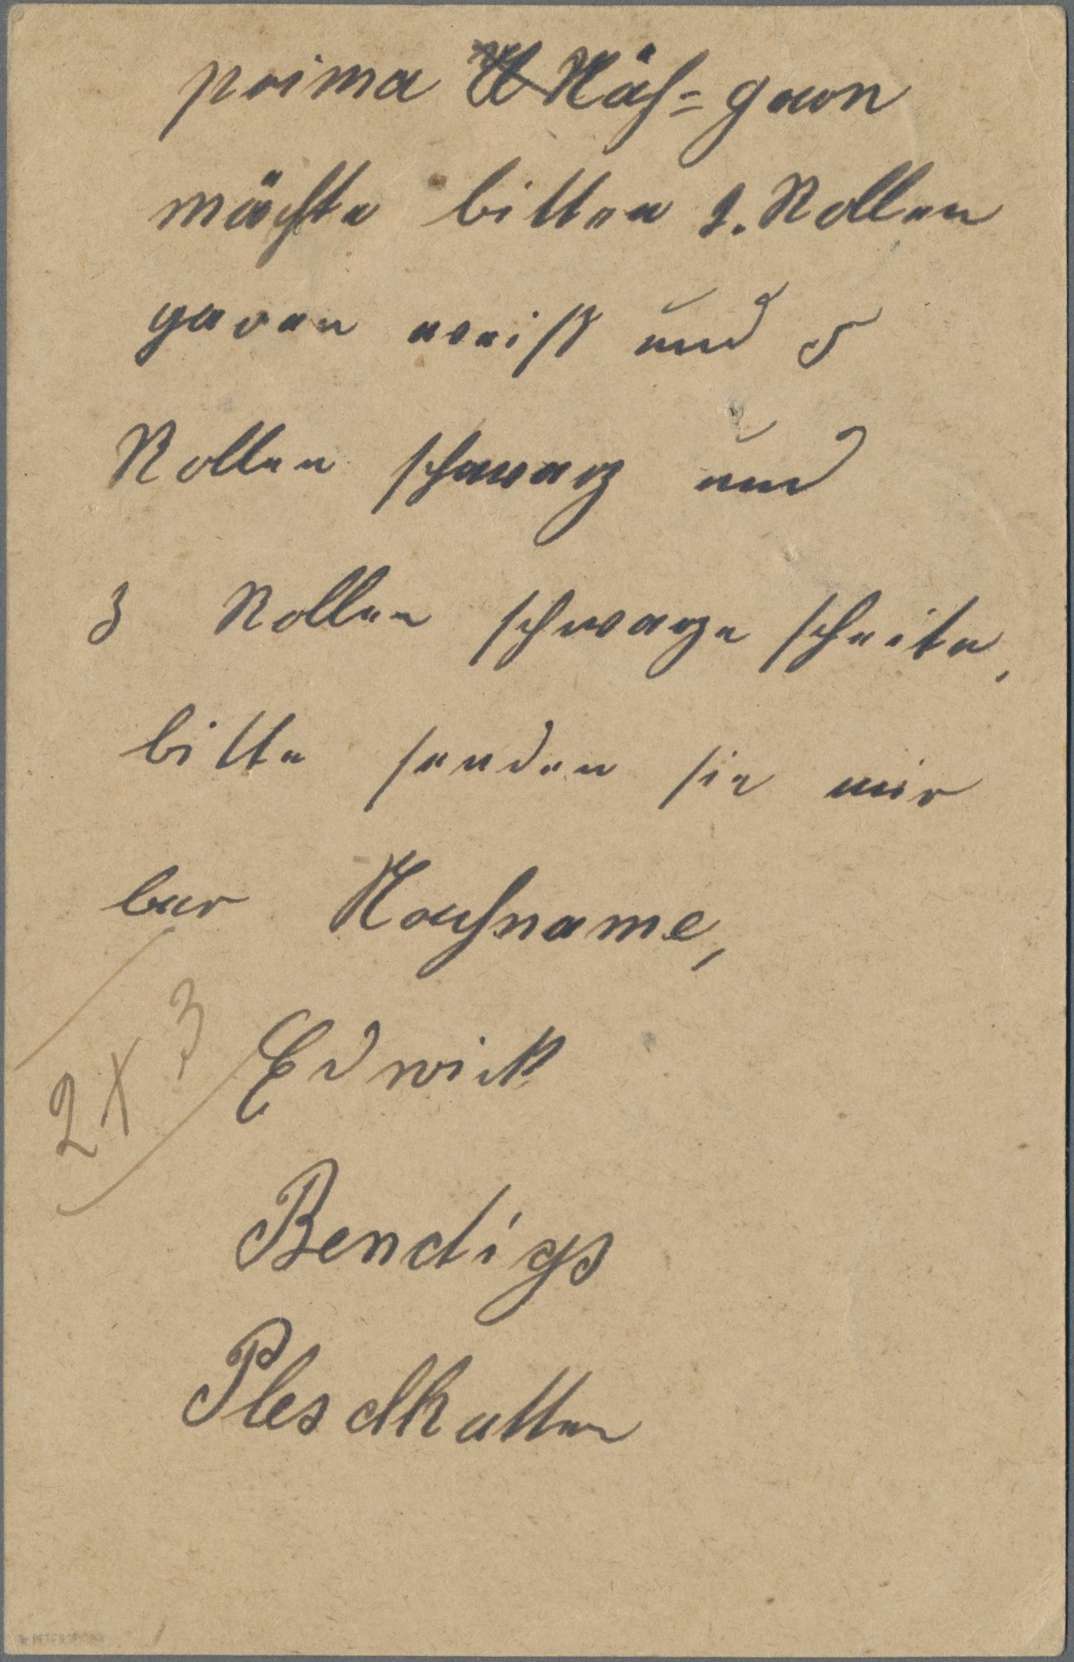 prima Näh=garn
möchte bitten 2. Rollen
garen weiß und 5
Rollen schwarz und
3 Rollen schwarze scheite,
bitte senden sie mir
bar Nachname,
2 x 3
Edwick
Bendigs